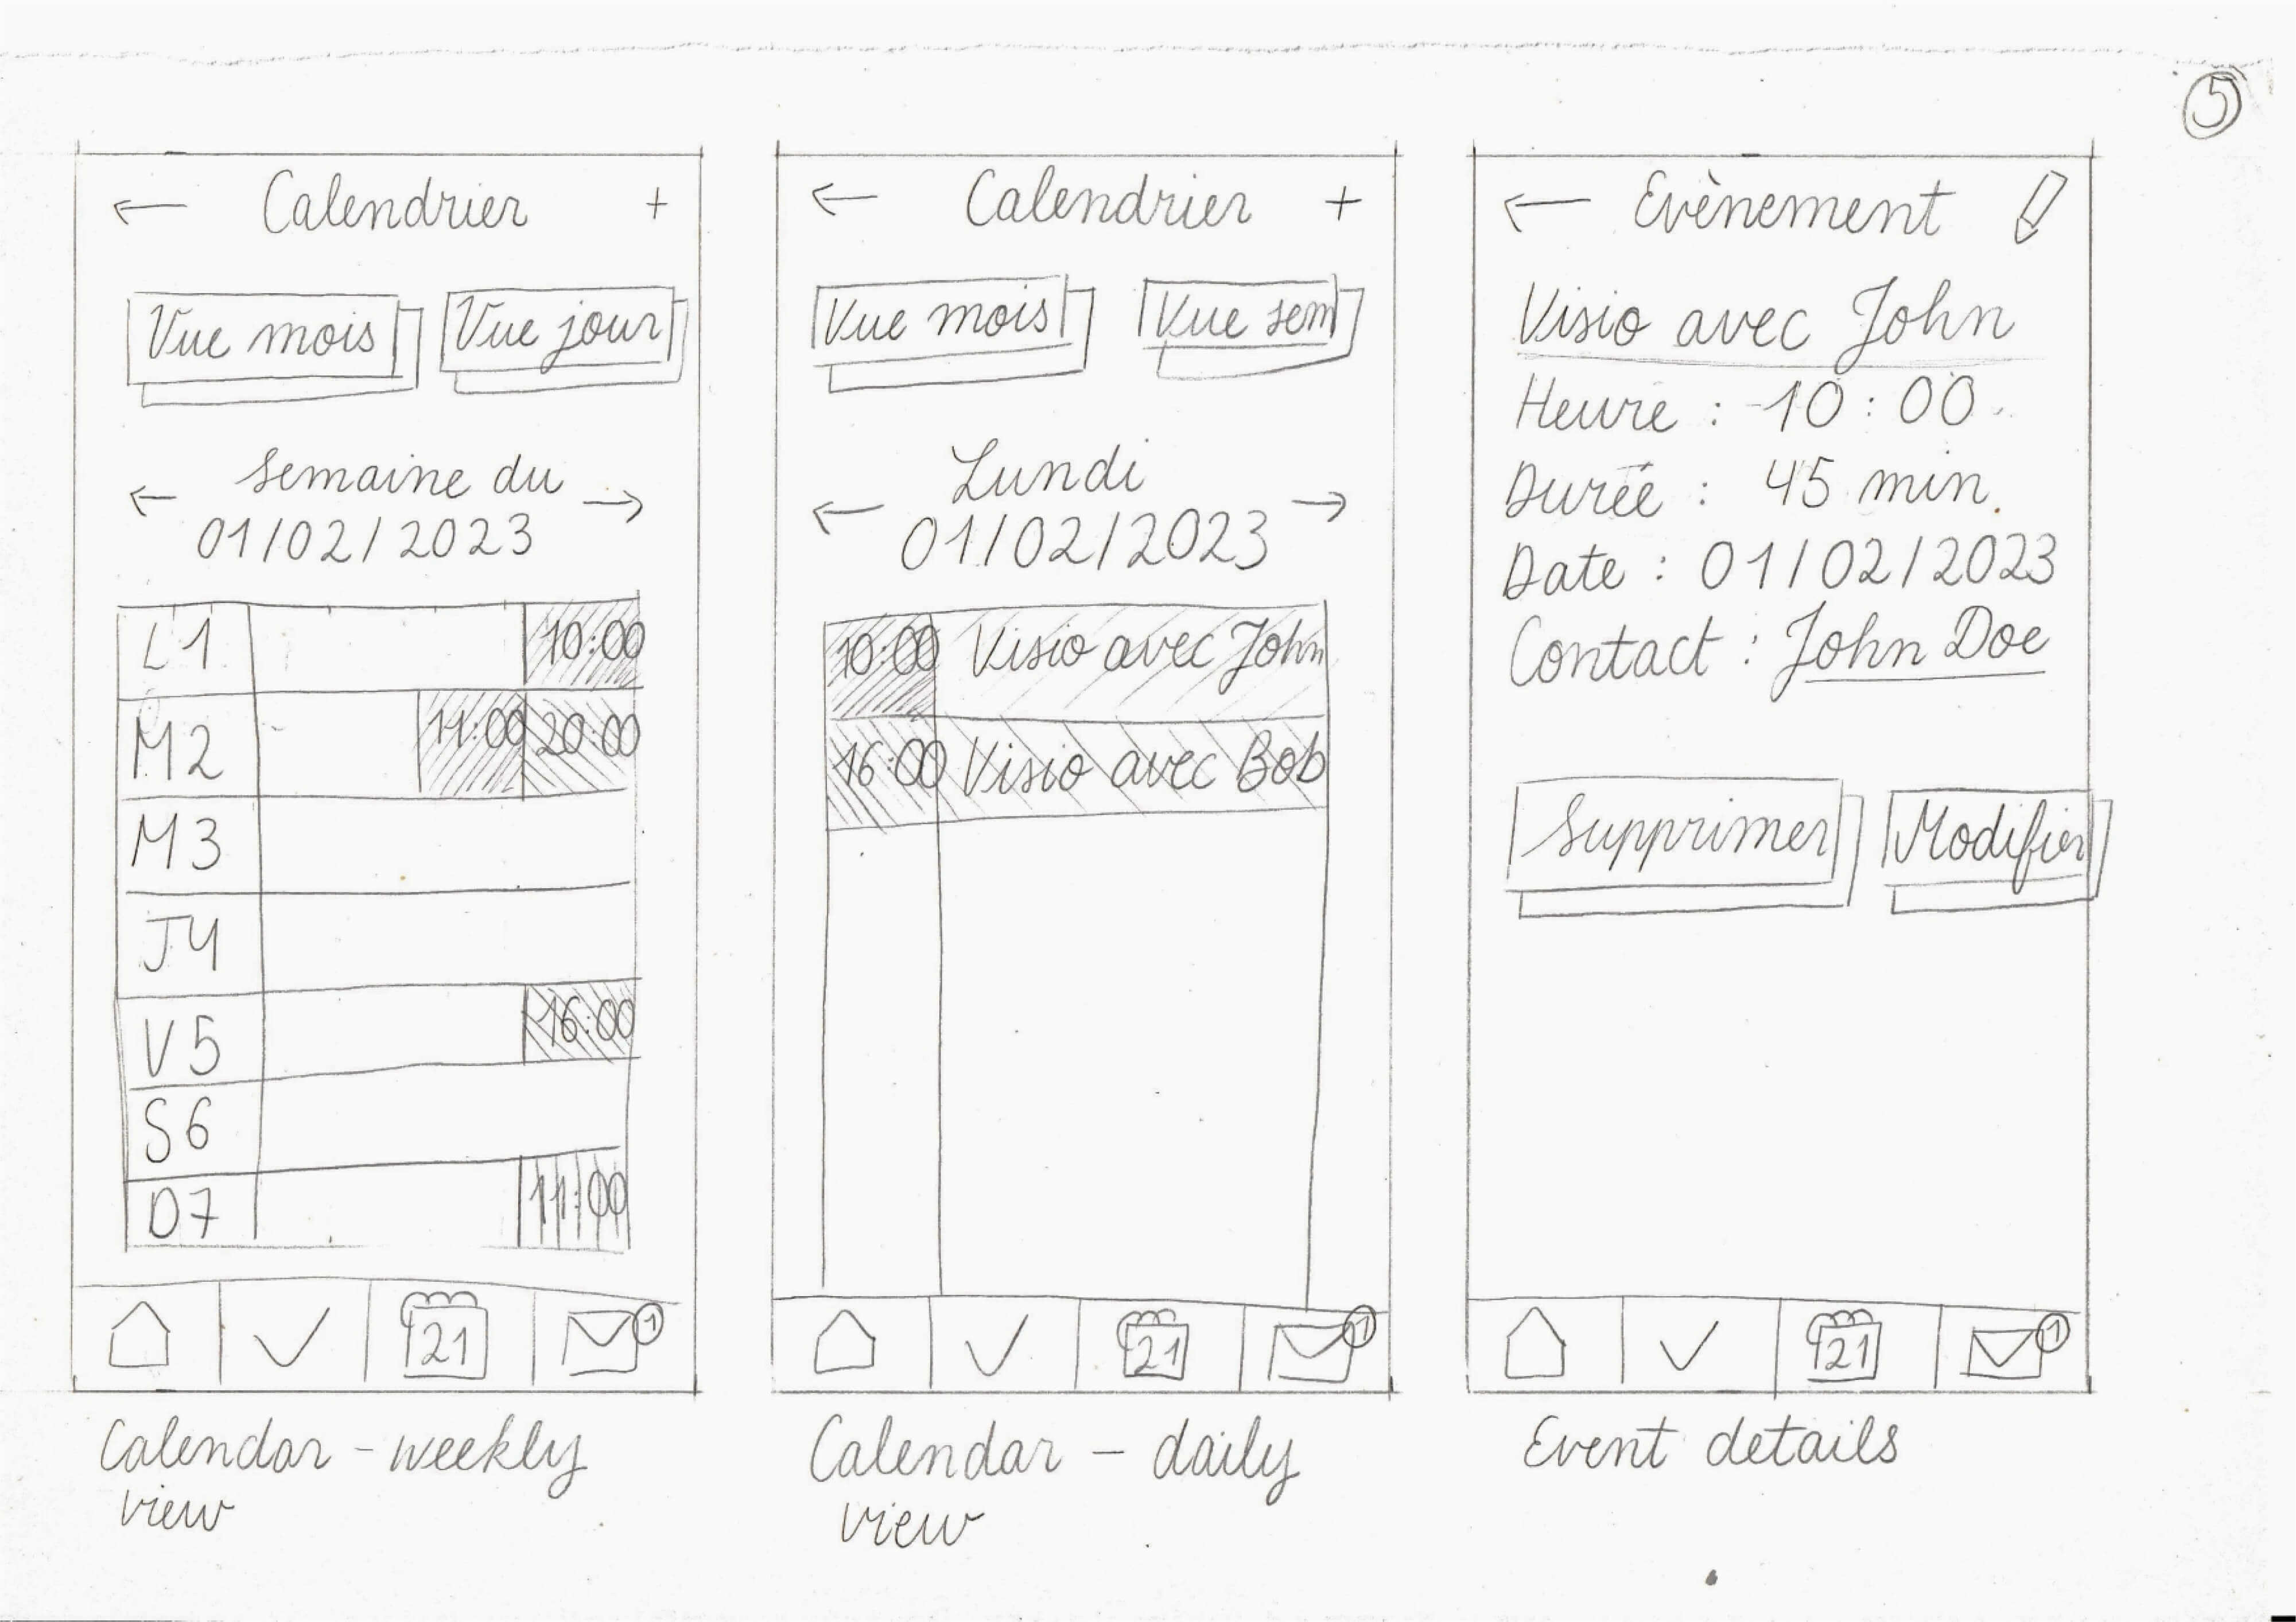 5
← Calendrier +
Vue mois Vue jour
← Semaine du →
01/02/2023
L1 10:00
M2 11:00 20:00
M3
J4
V5 16:00
S6
D7 11:00
21 1
Calendar - weekly
view
← Calendrier +
Vue mois Vue sem
← Lundi →
01/02/2023
10:00 Visio avec John
16:00 Visio avec Bob
21 1
Calendar - daily
view
← Evènement
Visio avec John
Heure : 10:00
Durée : 45 min.
Date : 01/02/2023
Contact : John Doe
Supprimer Modifier
21 1
Event details